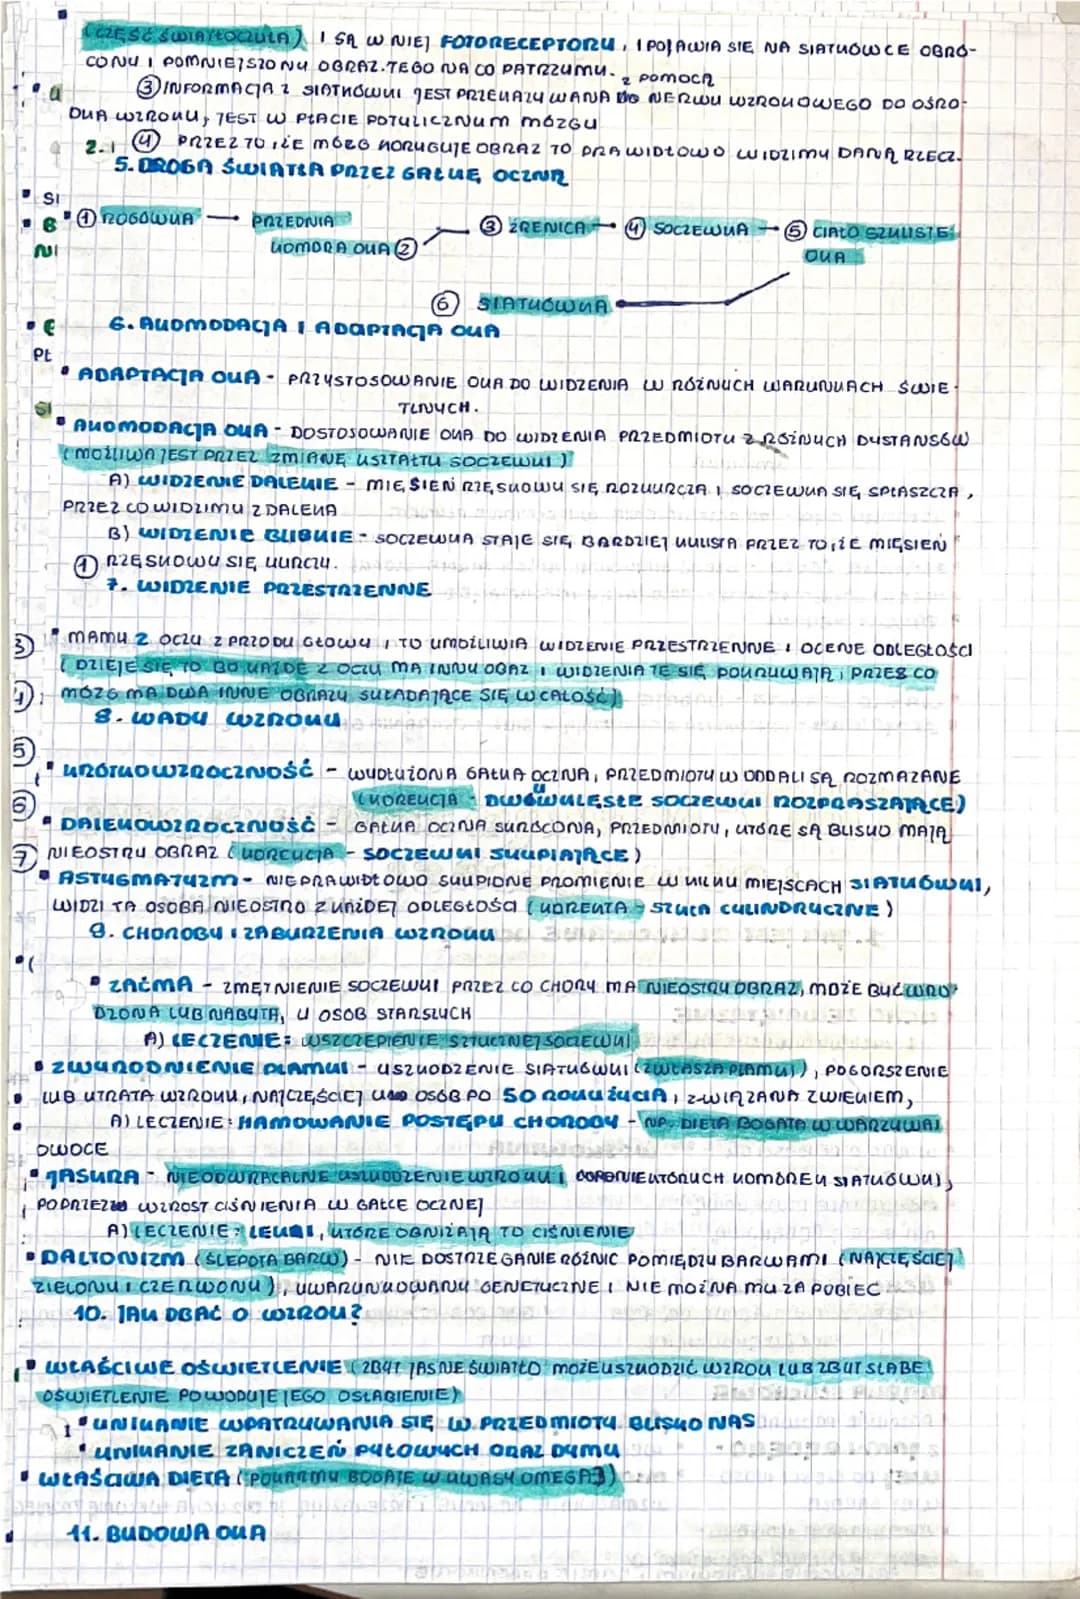 (CZĘŚĆ ŚWIATŁOCZUŁA) I SĄ W NIEJ FOTORECEPTORY, I POJAWIA SIĘ NA SIATKÓWCE OBRÓ-
CONY I POMNIEJSZONY OBRAZ TEGO NA CO PATRZYMY. Z POMOCĄ
③ INFORMACJA Z SIATKÓWKI JEST PRZEKAZYWANA DO NERWU WZROKOWEGO DO OŚRO-
DKA WZROKU, JEST W PŁACIE POTYLICZNYM MÓZGU
2. ④ PRZEZ TO, ŻE MÓZG KORYGUJE OBRAZ TO PRAWIDŁOWO WIDZIMY DANĄ RZECZ.
5. DROGA ŚWIATŁA PRZEZ GAŁKĘ OCZNĄ
SI
B
NI
① ROGÓWKA — PRZEDNIA KOMORA OKA ② — ③ ŹRENICA — ④ SOCZEWKA — ⑤ CIAŁO SZKLISTE OKA
⑥ SIATKÓWKA
6. AKOMODACJA I ADAPTACJA OKA
PŁ
• ADAPTACJA OKA - PRZYSTOSOWANIE OKA DO WIDZENIA W RÓŻNYCH WARUNKACH ŚWIE-
TLNYCH.
SI
• AKOMODACJA OKA - DOSTOSOWANIE OKA DO WIDZENIA PRZEDMIOTU Z RÓŻNYCH DYSTANSÓW
(MOŻLIWA JEST PRZEZ ZMIANĘ KSZTAŁTU SOCZEWKI)
A) WIDZENIE DALEKIE - MIĘSIEŃ RZĘSKOWY SIĘ ROZKURCZA I SOCZEWKA SIĘ SPŁASZCZA,
PRZEZ CO WIDZIMY Z DALEKA
B) WIDZENIE BLISKIE - SOCZEWKA STAJE SIĘ BARDZIEJ KULISTA PRZEZ TO, ŻE MIĘSIEŃ
① RZĘSKOWY SIĘ KURCZY.
7. WIDZENIE PRZESTRZENNE
③ • MAMY 2 OCZY Z PRZODU GŁOWY, TO UMOŻLIWIA WIDZENIE PRZESTRZENNE I OCENĘ ODLEGŁOŚCI
(DZIEJE SIĘ TO BO KAŻDE Z OCZU MA INNY OBAZ I WIDZENIA TE SIĘ POKRYWAJĄ, PRZEZ CO
④ MÓZG MA DWA INNE OBRAZY SKŁADAJĄCE SIĘ W CAŁOŚĆ)
8. WADY WZROKU
⑤
• KRÓTKOWZROCZNOŚĆ - WYDŁUŻONA GAŁKA OCZNA, PRZEDMIOTY W ODDALI SĄ ROZMAZANE
⑥ (KOREKCJA - DWUWKLĘSŁE SOCZEWKI ROZPRASZAJĄCE)
• DALEKOWZROCZNOŚĆ - GAŁKA OCZNA SKRÓCONA, PRZEDMIOTY, KTÓRE SĄ BLISKO MAJĄ
⑦ NIEOSTRY OBRAZ (KOREKCJA - SOCZEWKI SKUPIAJĄCE)
• ASTYGMATYZM - NIEPRAWIDŁOWO SKUPIONE PROMIENIE W KILKU MIEJSCACH SIATKÓWKI,
WIDZI TA OSOBA NIEOSTRO Z KAŻDEJ ODLEGŁOŚCI (KOREKTA - SZKŁA CYLINDRYCZNE)
9. CHOROBY I ZABURZENIA WZROKU
• ZAĆMA - ZMĘTNIENIE SOCZEWKI PRZEZ CO CHORY MA NIEOSTRY OBRAZ, MOŻE BYĆ WRO-
DZONA LUB NABYTA, U OSÓB STARSZYCH
A) LECZENIE: WSZCZEPIENIE SZTUCZNEJ SOCZEWKI
• ZWYRODNIENIE PLAMKI - USZKODZENIE SIATKÓWKI (ZWŁASZA PLAMKI), POGORSZENIE
LUB UTRATA WZROKU, NAJCZĘŚCIEJ U OSÓB PO 50 ROKU ŻYCIA, ZWIĄZANA Z WIEKIEM,
A) LECZENIE: HAMOWANIE POSTĘPU CHOROBY - NP. DIETA BOGATA W WARZYWA I
OWOCE
• JASKRA - NIEODWRACALNE USZKODZENIE WZROKU I KOMÓREK SIATKÓWKI,
POPRZEZ WZROST CIŚNIENIA W GAŁCE OCZNEJ
A) LECZENIE: LEKKI, KTÓRE OBNIŻAJĄ TO CIŚNIENIE
• DALTONIZM (ŚLEPOTA BARW) - NIE DOSTRZEGANIE RÓŻNIC POMIĘDZY BARWAMI (NAJCZĘŚCIEJ
ZIELONY I CZERWONY), UWARUNKOWANY GENETYCZNIE I NIE MOŻNA MU ZAPOBIEC
10. JAK DBAĆ O WZROK?
• WŁAŚCIWE OŚWIETLENIE (ZBYT JASNE ŚWIATŁO MOŻE USZKODZIĆ WZROK LUB ZBYT SŁABE
OŚWIETLENIE POWODUJE JEGO OSŁABIENIE)
• UNIKANIE WPATRYWANIA SIĘ W PRZEDMIOTY BLISKO NAS
• UNIKANIE ZANICZEŃ PYŁOWYCH ORAZ DYMU
• WŁAŚCIWA DIETA (POKARMY BOGATE W KWASY OMEGA 3)
11. BUDOWA OKA